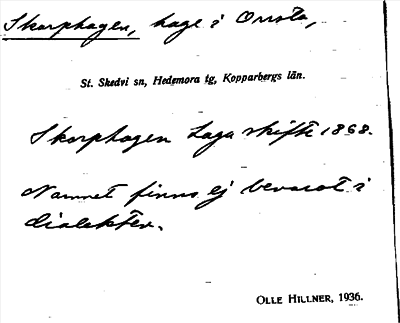 Skorphagen, hage i Onsta,
St. Skedvi sn, Hedemora tg, Kopparbergs län.
Skorphagen Laga skifte 1868.
Namnet finns ej bevarat i
dialekten.
OLLE HILLNER, 1936.